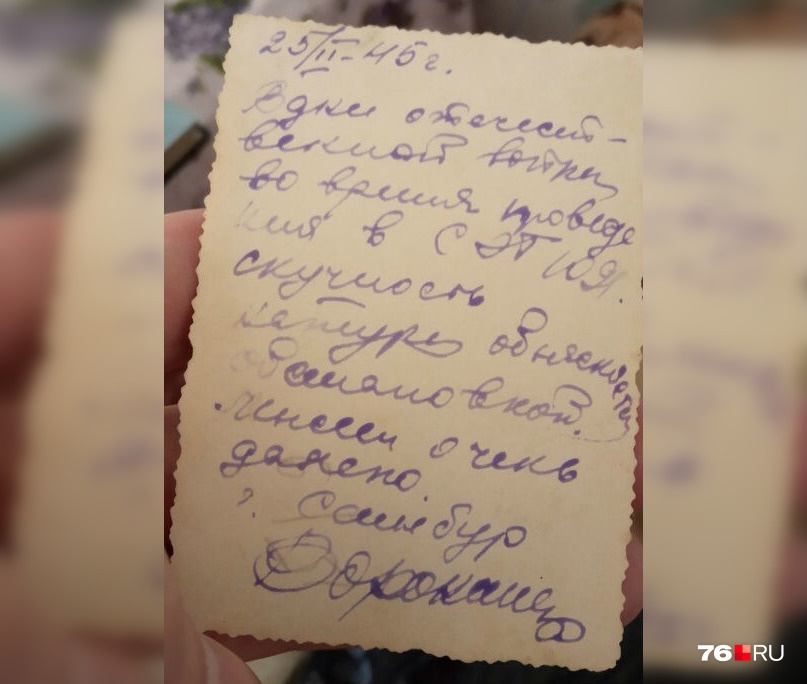 25/II-45 г.
В дни отечест-
венной войны
во время проведе
ния в С ЭГ
скучность
натуры объясняется
обстановкой.
очень
далеко.
Самбур
76.RU